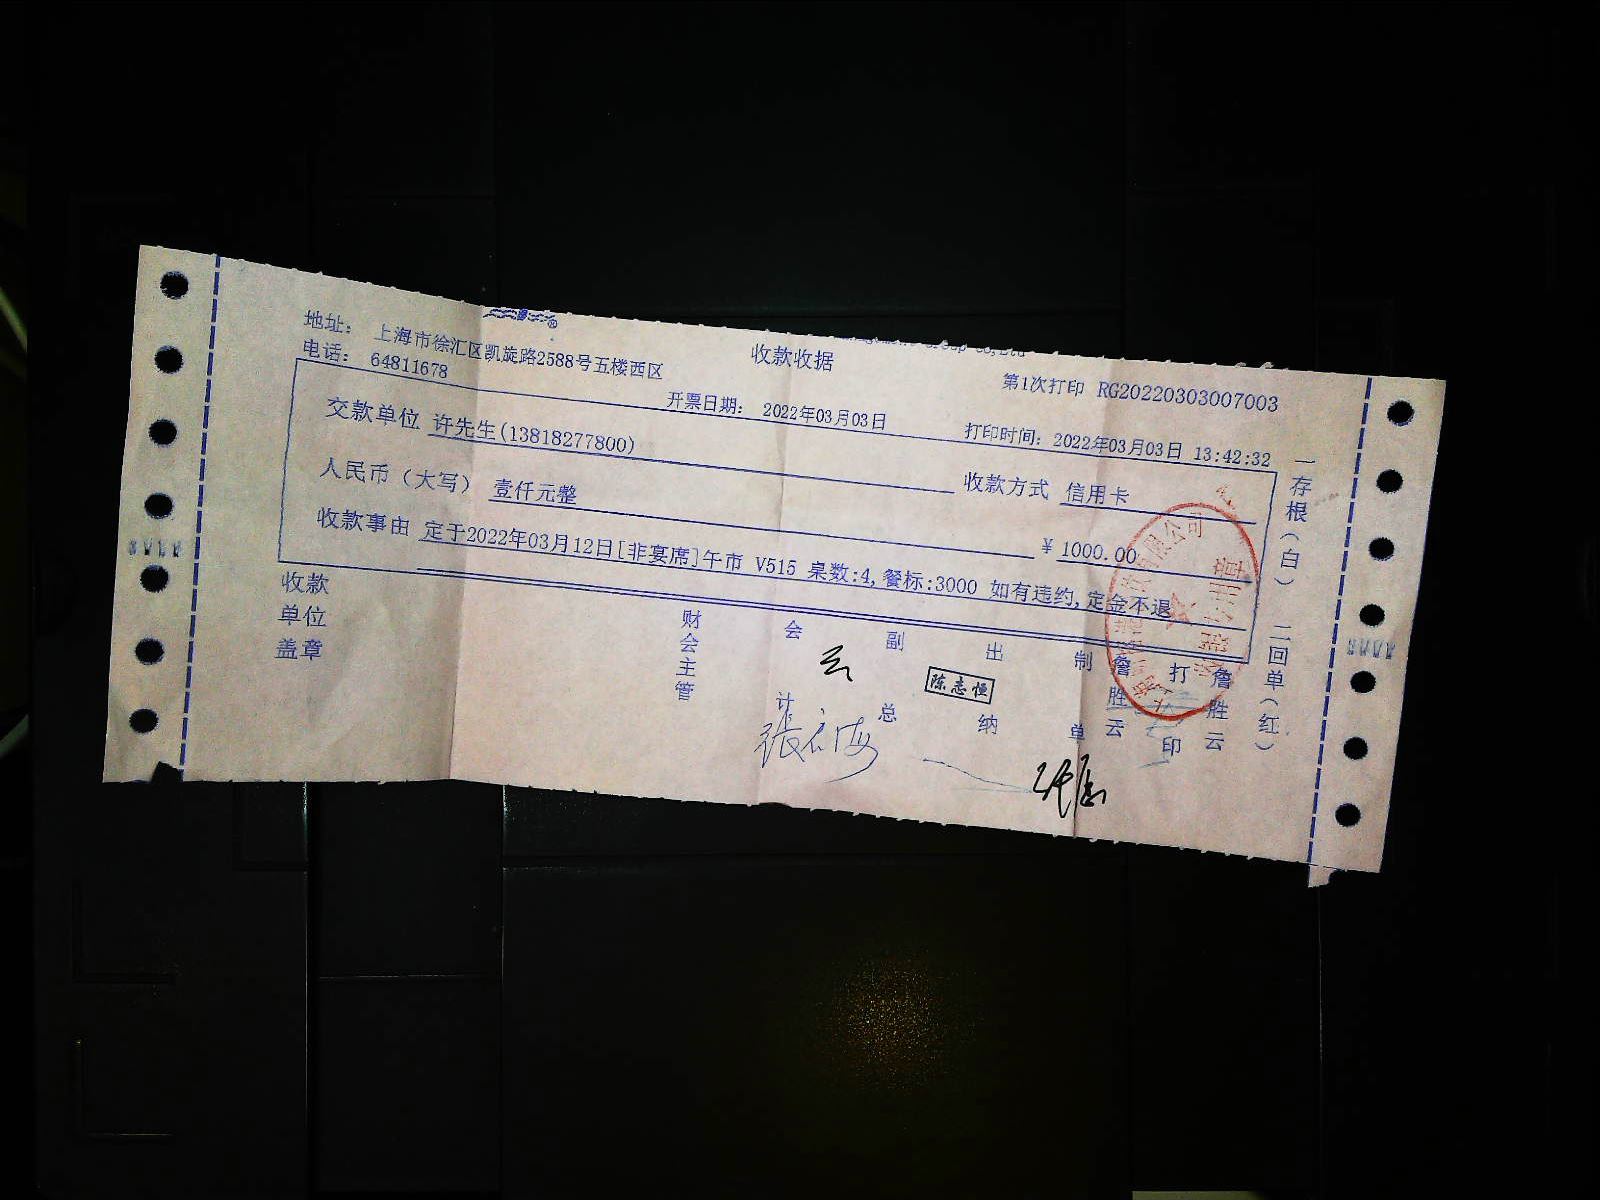 收款收据
地址： 上海市徐汇区凯旋路2588号五楼西区
电话： 64811678
第1次打印 RG20220303007003
开票日期： 2022年03月03日
打印时间：2022年03月03日 13:42:32
交款单位 许先生(13818277800)
收款方式 信用卡
人民币（大写） 壹仟元整
￥ 1000.00
收款事由 定于2022年03月12日[非宴席]午市 V515 桌数:4,餐标:3000 如有违约,定金不退
收款单位盖章
财会主管
会计
副总
陈志恒
出纳
制单
詹胜云
打印
詹胜云
一存根（白） 二回单（红）